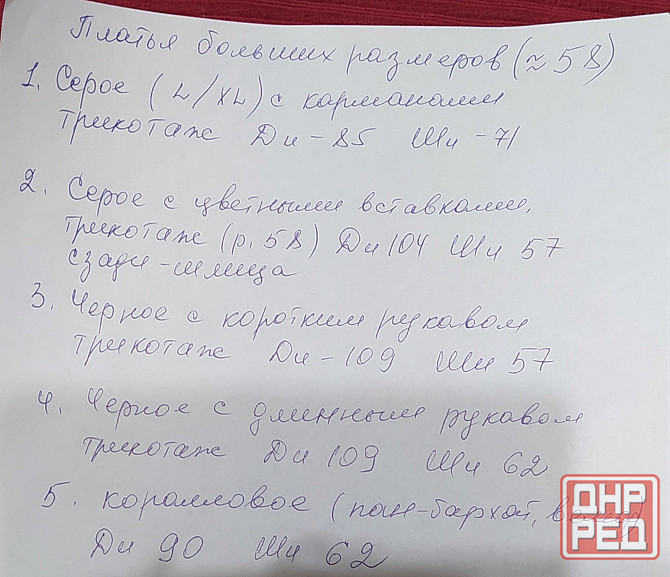 Платья больших размеров (≈58)
1. Серое (L/XL) с карманами
трикотаж Дц - 85 Шц - 71
2. Серое с цветными вставками,
трикотаж (р. 58) Дц 104 Шц 57
сзади - шлица
3. Черное с коротким рукавом
трикотаж Дц - 109 Шц 57
4. Черное с длинным рукавом
трикотаж Дц 109 Шц 62
5. коралловое (пан-бархат,
Дц 90 Шц 62
ДНР
РЕД